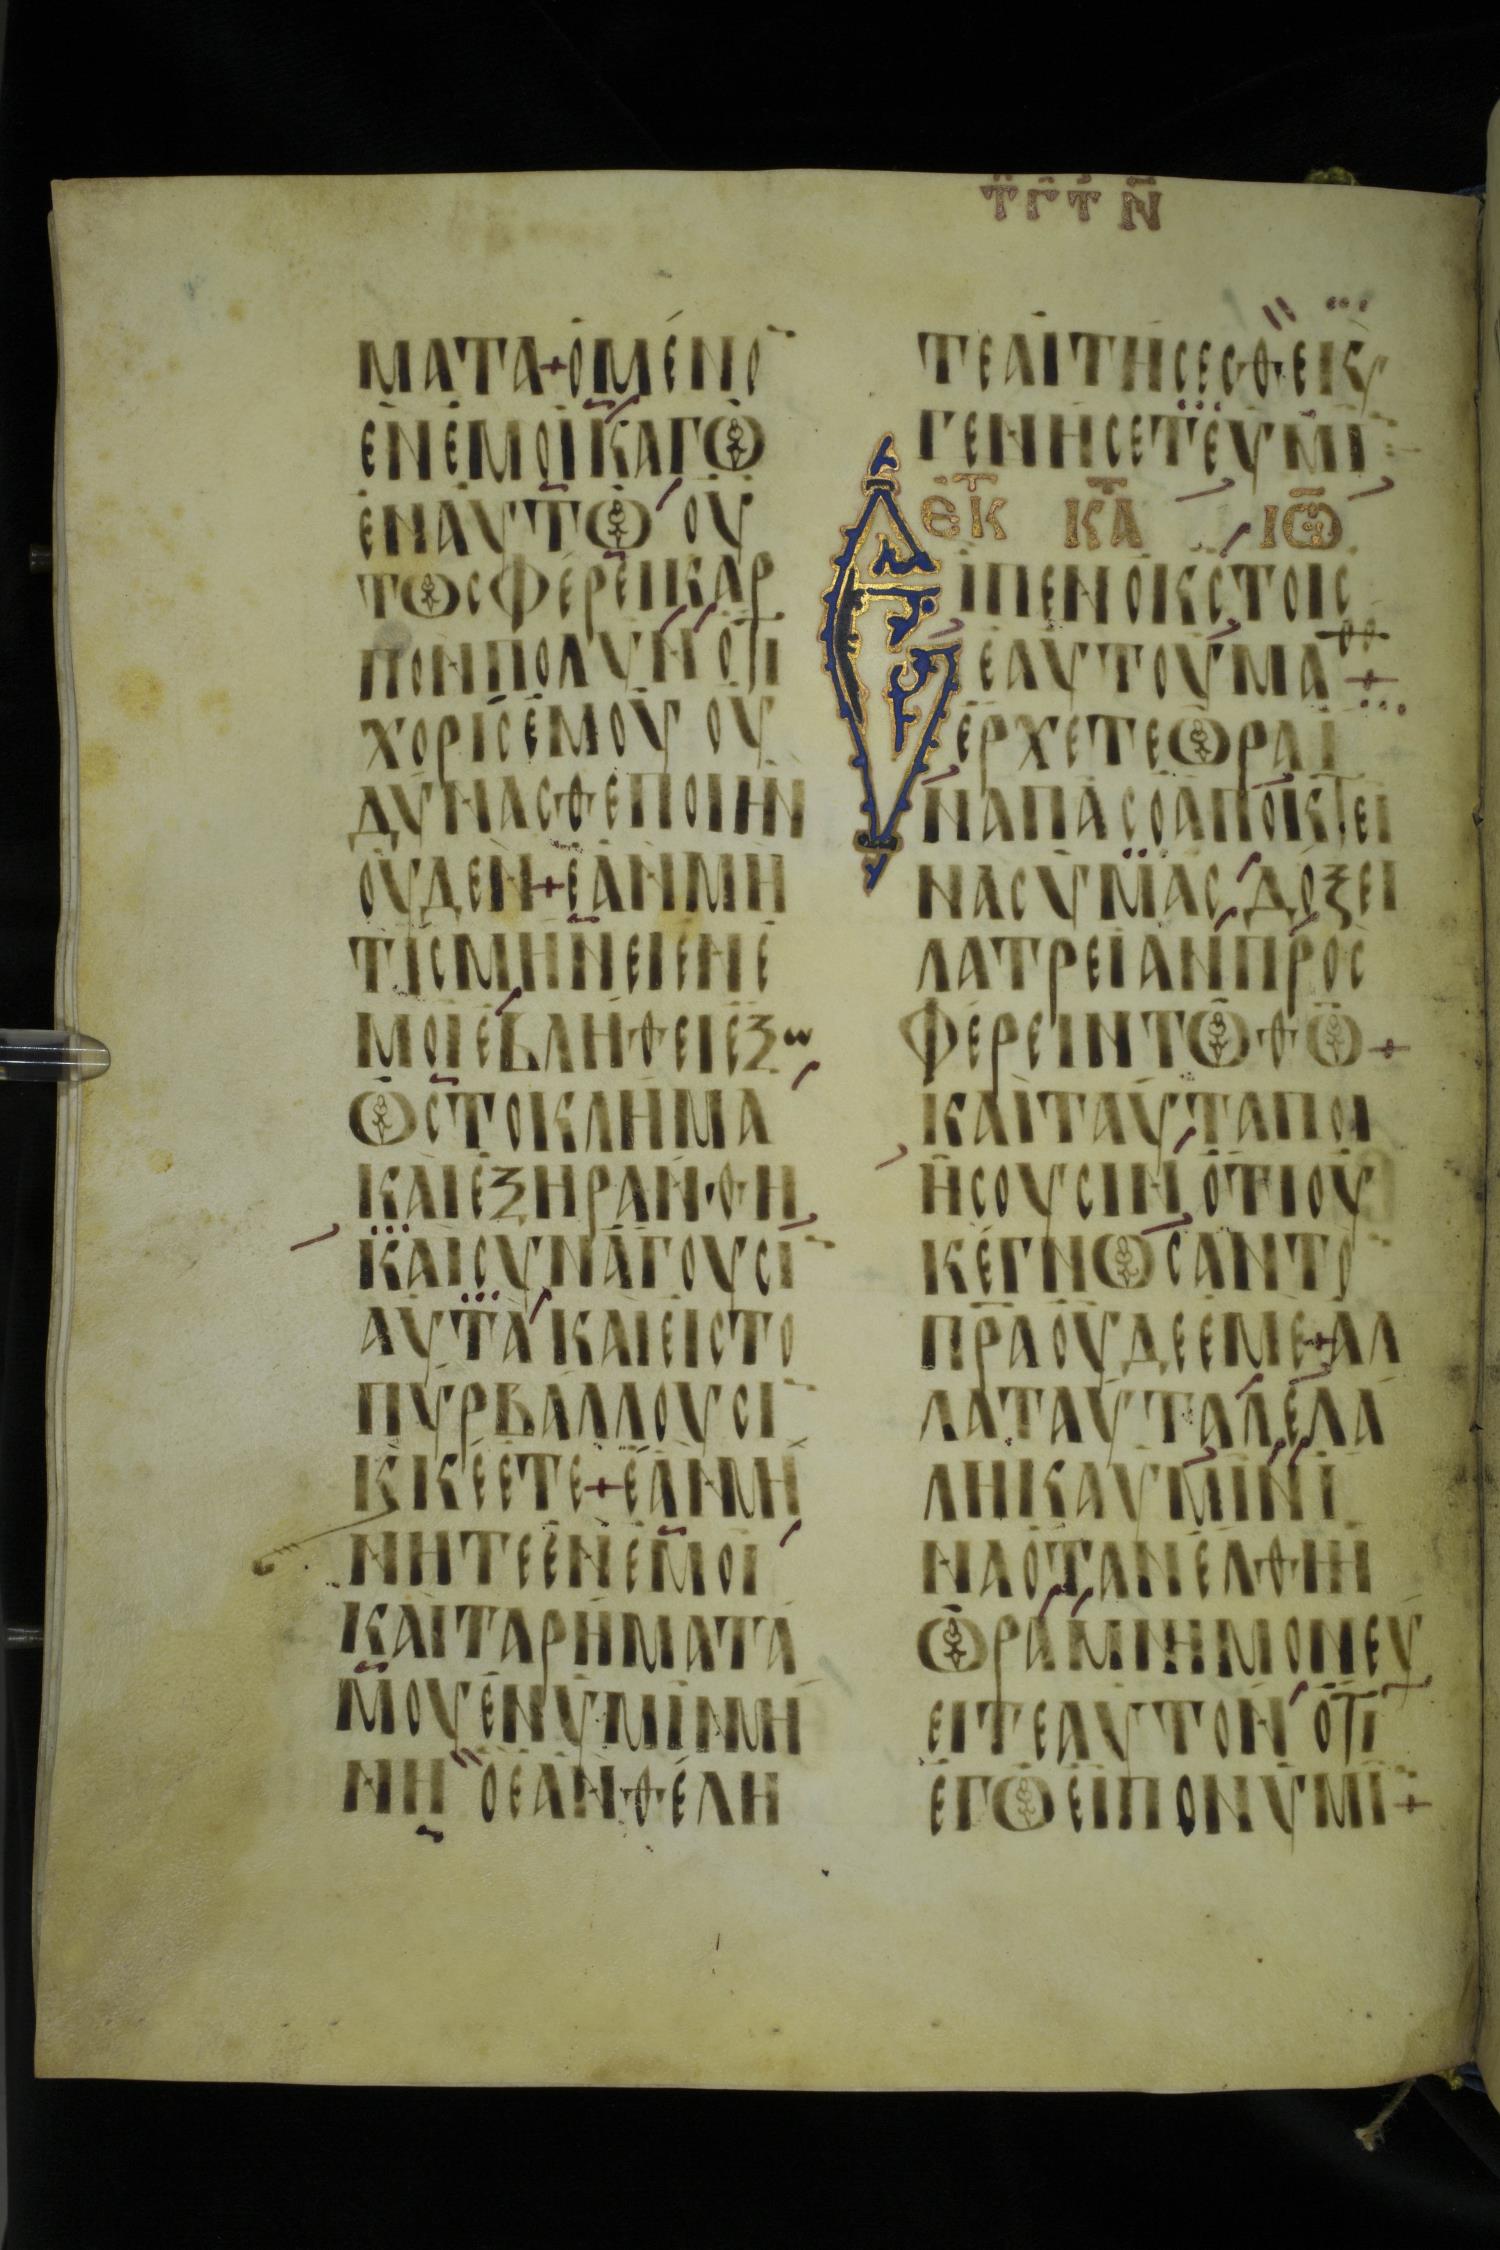 ΜΑΤΑ+ΟΜΕΝΟ
ΕΝΕΜΟΙΚΑΓΩ
ΕΝΑΥΤΩ ΟΥ
ΤΩΣΦΕΡΕΙΚΑΡ
ΠΟΝΠΟΛΥΝ ΟΤΙ
ΧΟΡΙΣΕΜΟΥ ΟΥ
ΔΥΝΑΣΘΕΠΟΙΗΝ
ΟΥΔΕΝ+ΕΑΝΜΗ
ΤΙΣΜΗΝΕΙΕΝΕ
ΜΟΙΕΒΛΗΘΕΙΕΞω
ΩΣΤΟΚΛΗΜΑ
ΚΑΙΕΞΗΡΑΝΘΗ
ΚΑΙΣΥΝΑΓΟΥΣΙ
ΑΥΤΑΚΑΙΕΙΣΤΟ
ΠΥΡΒΑΛΛΟΥΣΙ
ΚΚΕΕΤΕ+ΕΑΝΜΗ
ΝΗΤΕΕΝΕΜΟΙ
ΚΑΙΤΑΡΗΜΑΤΑ
ΜΟΥΕΝΥΜΙΝΜΗ
ΝΗ ΟΕΑΝΘΕΛΗ
ΤΕΑΙΤΗΣΕΣΘΕΚ
ΓΕΝΗΣΕΤΕΥΜΙ
ΕΚ ΚΑ ΙΩ
ΕΙΠΕΝΟΚΣΤΟΙΣ
ΕΑΥΤΟΥΜΑ
ΕΡΧΕΤΕΩΡΑΙ
ΝΑΠΑΣΟΑΠΟΚΤΕΙ
ΝΑΣΥΜΑΣ ΔΟΞΕΙ
ΛΑΤΡΕΙΑΝΠΡΟΣ
ΦΕΡΕΙΝΤΩΘΩ+
ΚΑΙΤΑΥΤΑΠΟΙ
ΗΣΟΥΣΙΝ ΟΤΙΟΥ
ΚΕΓΝΩΣΑΝΤΟ
ΠΡΑΟΥΔΕΕΜΕ+ΑΛ
ΛΑΤΑΥΤΑΛΕΛΑ
ΛΗΚΑΥΜΙΝΙ
ΝΑΟΤΑΝΕΛΘΗΙ
ΩΡΑΜΝΗΜΟΝΕΥ
ΕΙΤΕΑΥΤΟΝ ΟΤΙ
ΕΓΩΕΙΠΟΝΥΜΙ+